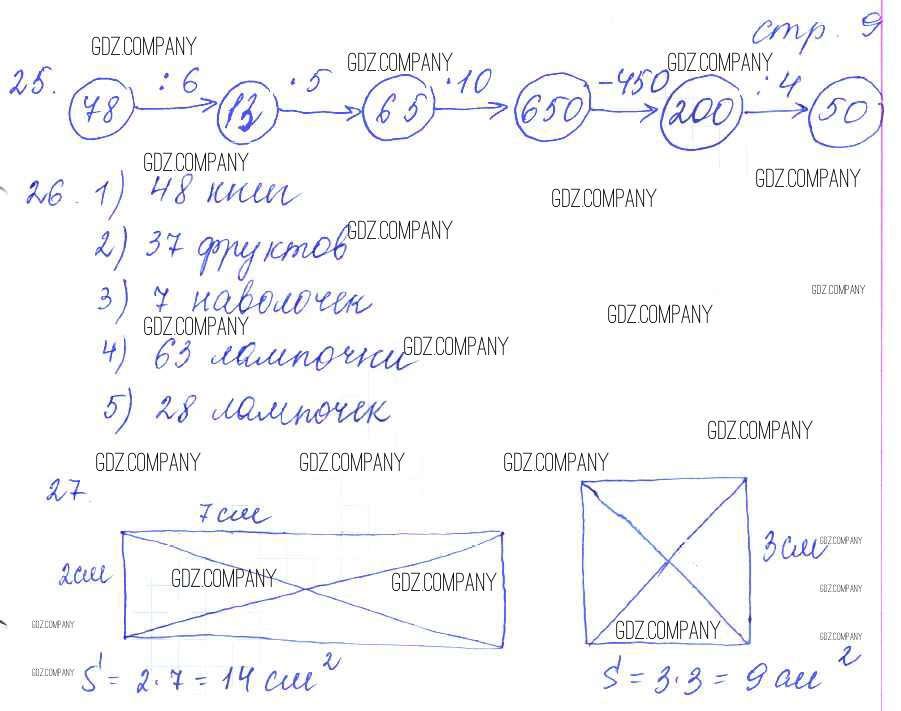 стр. 9
GDZ.COMPANY
GDZ.COMPANY GDZ.COMPANY
25. 78 :6 13 ·5 65 ·10 650 -450 200 :4 50
GDZ.COMPANY
GDZ.COMPANY
26. 1) 48 книг
GDZ.COMPANY
2) 37 фруктов
GDZ.COMPANY
GDZ.COMPANY
3) 7 наволочек
GDZ.COMPANY
GDZ.COMPANY
4) 63 лампочки
GDZ.COMPANY
5) 28 лампочек
GDZ.COMPANY
GDZ.COMPANY GDZ.COMPANY GDZ.COMPANY
27.
7 см
2 см
3 см
GDZ.COMPANY
GDZ.COMPANY GDZ.COMPANY
GDZ.COMPANY
GDZ.COMPANY GDZ.COMPANY
GDZ.COMPANY
GDZ.COMPANY
S = 2·7 = 14 см²
S = 3·3 = 9 см²